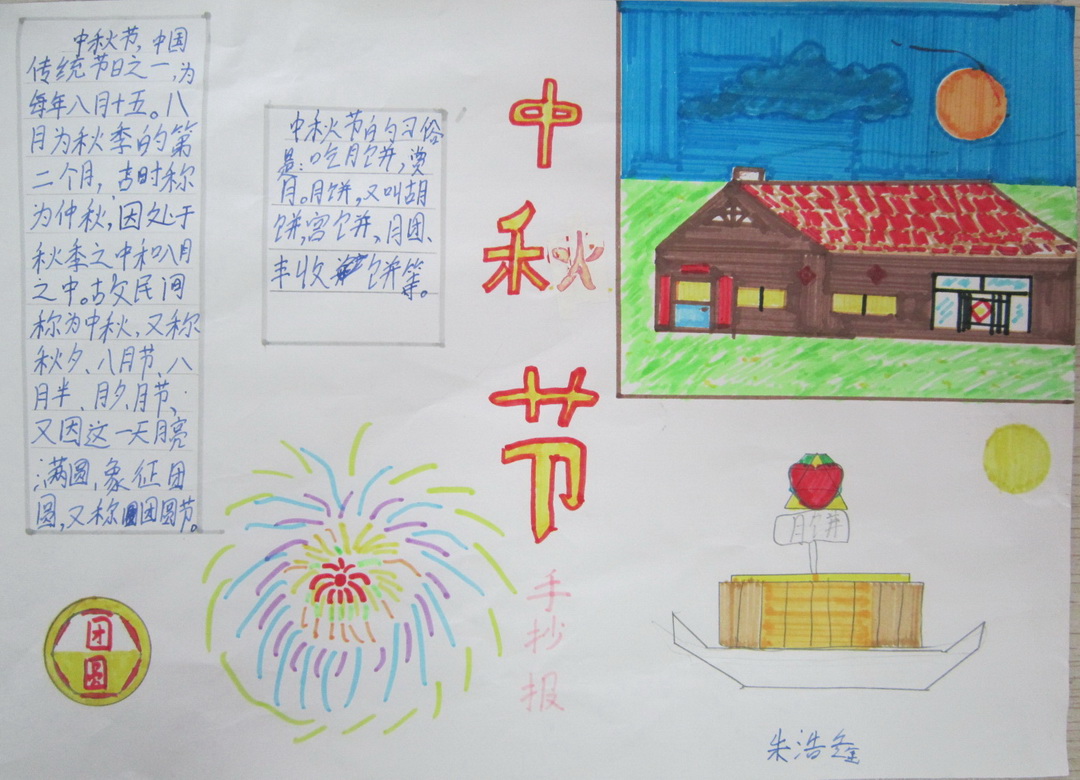 中秋节,中国
传统节日之一,为
每年八月十五。八
月为秋季的第
二个月,古时称
为仲秋,因处于
秋季之中和八月
之中。古文民间
称为中秋,又称
秋夕、八月节、八
月半、月夕、月节、
又因这一天月亮
满圆,象征团
圆,又称团圆节。
中秋节的习俗
是:吃月饼,赏
月。月饼,又叫胡
饼,宫饼、月团、
丰收饼等。
中
秋
节
手
抄
报
团
圆
月饼
朱浩鑫